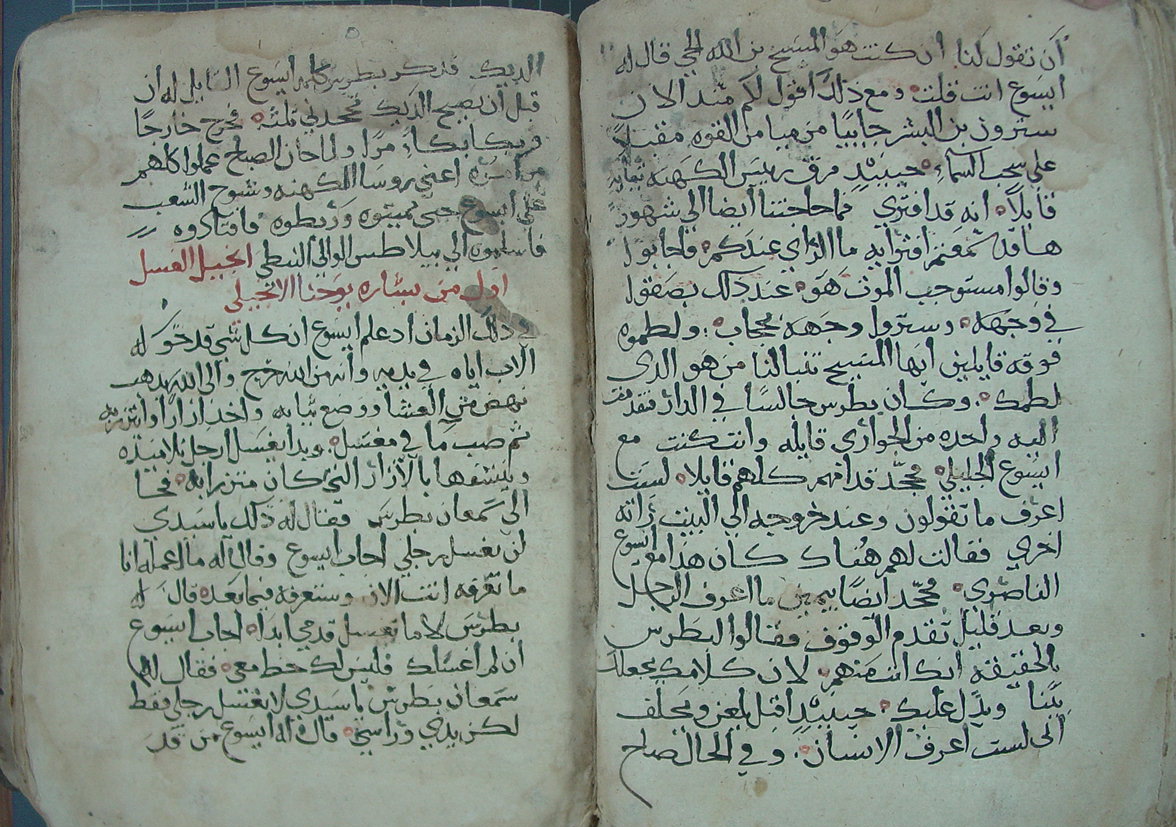 أن تقول لنا ان كنت هو المسيح بن الله الحي قال له
ايسوع انت قلت ومع ذلك اقول لكم منذ الان
سترون بن البشر جالسا من ميامن القوه مقبلاً
على سحب السماء حينيدٍ مزق رييس الكهنه ثيابه
قايلاً انه قد افترى فما حاجتنا ايضا الي شهور
هاقد سمعتم افترايه ما الراي عندكم فاجابوا
وقالوا مستوجب الموت هو عند ذلك بصقوا
في وجهه وستروا وجهه بحجاب ولطموه
فوقه قايلين ايها المسيح تنبا لنا من هو الدي
لطمك وكان بطرس جالسًا في الدار فتقدمت
اليه واحده من الجواري قايله وانت كنت مع
ايسوع الجليلي فجحد قدامهم كلهم قايلا لست
اعرف ما تقولون وعند خروجه الي البيت راته
اخري فقالت لهم هناك كان هذا مع ايسوع
الناصري فجحد ايضًا بيمين ما اعرف الرجل
وبعد قليل تقدم الوقوف فقالوا لبطرس
بالحقيقه انك انت منهم لان كلامك يجعلك
بيّنا ويدل عليك حينيدٍ اقبل يلعن ويحلف
اني لست اعرف الانسان وفي الحال صاح
الديك فذكر بطرس كلمه ايسوع القايل له ان
قبل أن يصيح الديك تجحدني ثلثه فخرج خارجًا
فبكا بكاءً مرًا ولما حان الصباح عملوا كلهم
اعني روسا الكهنه وشيوخ الشعب
علي ايسوع حتى يميتوه وربطوه فاقتادوه
فاسلموه الي بيلاطس الوالي النبطي انجيل الغسل
اول من بشاره يوحنا الانجيلي
في ذلك الزمان اذ علم ايسوع ان كل شي قد خوله
الاب اياه في يديه وأنه من الله خرج والي الله يذهب
نهض من العشا ووضع ثيابه واخذ ازارًا واتزر به
ثم صب ما في مغسل وبدا يغسل ارجل تلاميذه
وينشفها بالازار التي كان متزرا به فجا
الي سمعان بطرس فقال له ذلك يا سيدي
انت تغسل رجلي اجاب ايسوع وقال له ما اعمله انا
ما تعرفه انت الان وستعرفه فيما بعد قال له
بطرس لا ما تغسل قدمي ابدا اجاب ايسوع
ان لم اغسلك فليس لك حظ معي فقال له
سمعان بطرس يا سيدي لا تغسل رجلي فقط
لكن يدي وراسي قال له ايسوع من قد